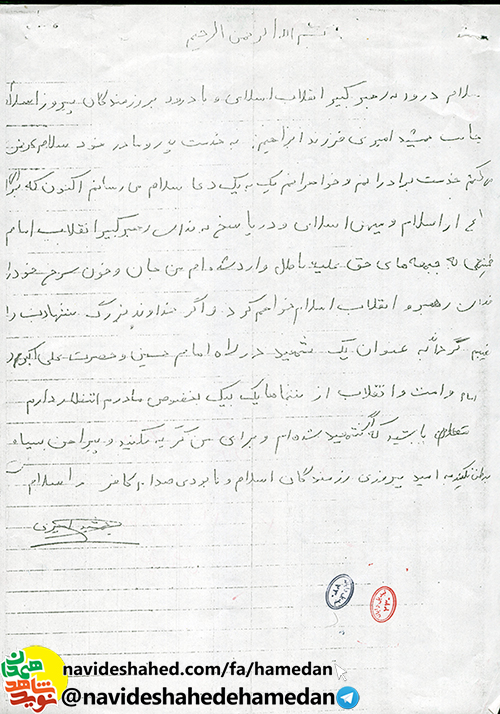 بسم الله الرحمن الرحیم
سلام درود به رهبر کبیر انقلاب اسلامی و با درود بر رزمندگان پیروز اسلام
جانب جمشید امیری فرزند ابراهیم به خدمت پدر و مادر خود سلام عرض
می کنم خدمت برادرانم و خواهرانم یک به یک دعا سلام می رسانم اکنون که برای
دفاع از اسلام و میهن اسلامی و در پاسخ به ندای رهبر کبیر انقلاب امام
خمینی به جبهه های حق علیه باطل وارد شده ام من جان و خون سرخ خود را
فدای رهبر و انقلاب اسلام خواهم کرد و اگر خداوند بزرگ شهادت را
نصیبم گرداند به عنوان یک شهید در راه امام حسین و حضرت علی اکبر
امام و امت و انقلاب از شماها یک بیک بخصوص مادرم انتظار دارم
باشید که اگر شهید شده ام و برای من گریه نکنید و پیراهن سیاه
به تن نکنید به امید پیروزی رزمندگان اسلام و نابودی صدام کافر والسلام
جمشید امیری
نوید شاهد همدان
navideshahed.com/fa/hamedan
@navideshahedehamedan